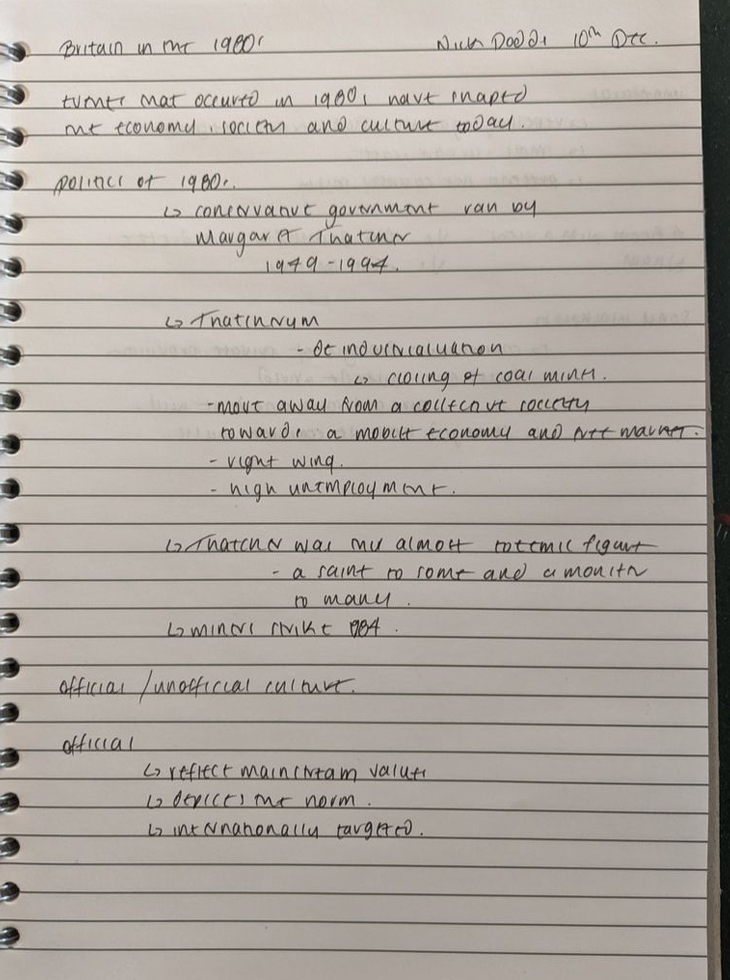 Britain in the 1980s Nick Dodds 10th Dec.
events that occured in 1980s have shaped
the economy, society and culture today.
politics of 1980s.
↳ conservative government ran by
Margaret Thatcher
1979-1994.
↳ Thatcherism
- deindustrialisation
↳ closing of coal mines.
- move away from a collective society
towards a mobile economy and free market.
- right wing.
- high unemployment.
↳ Thatcher was this almost totemic figure
- a saint to some and a monster
to many.
↳ miners strike 1984.
official / unofficial culture.
official
↳ reflect mainstream values
↳ depicts the norm.
↳ internationally targeted.